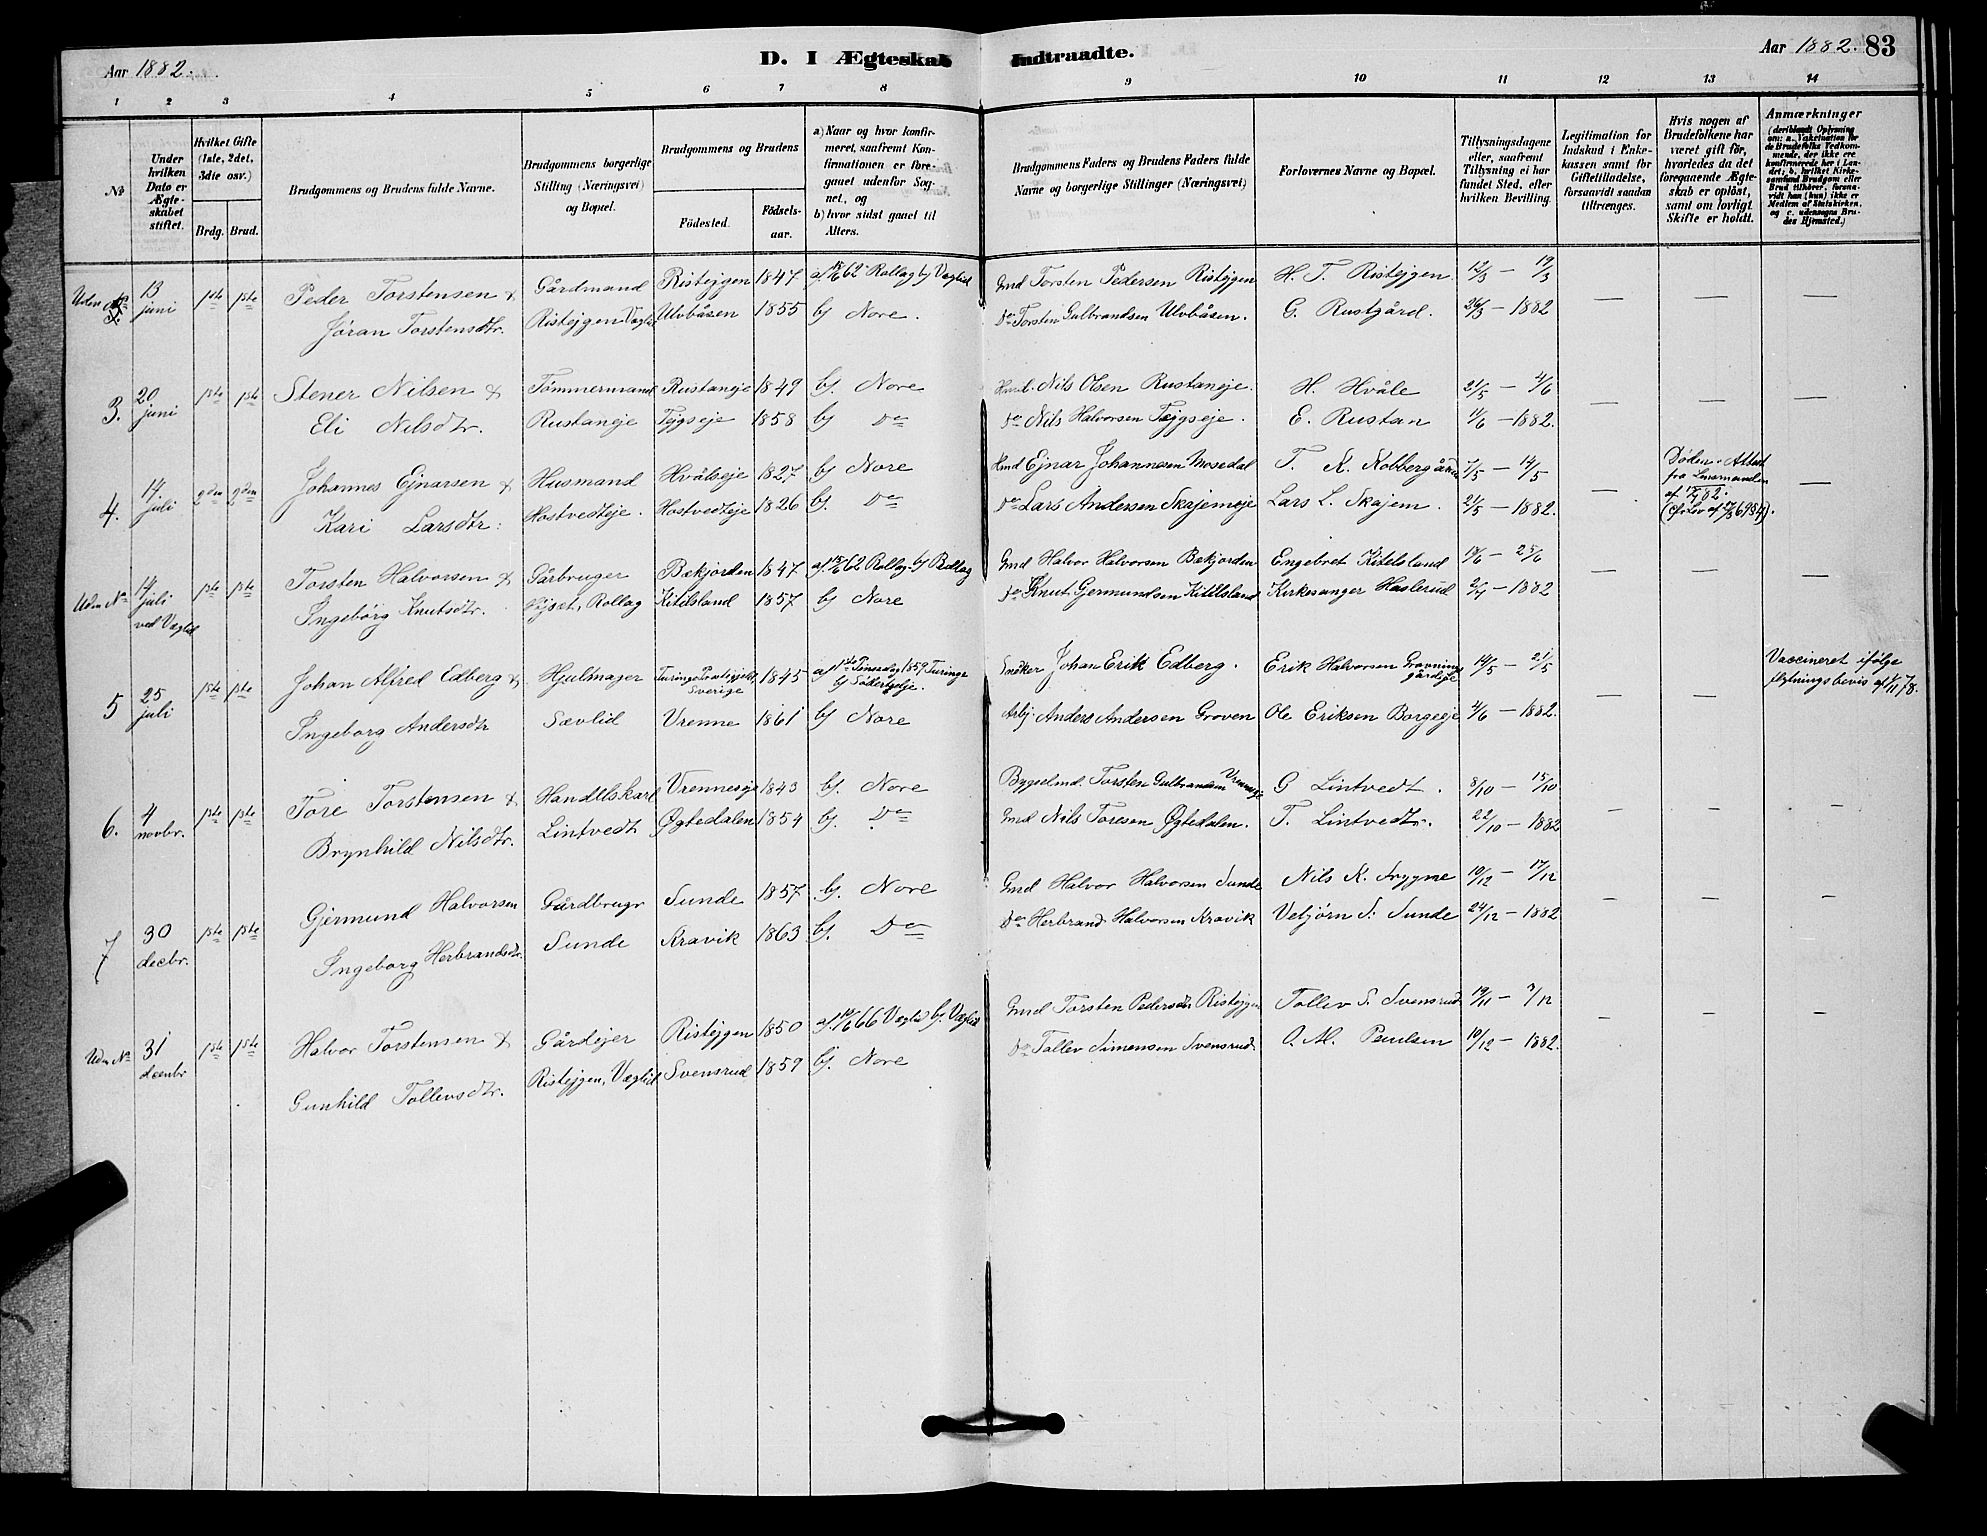 Aar 1882.
D. I Ægteskab Indtraadte.
Aar 1882. 83
1 2 3 4 5 6 7 8 9 10 11 12 13 14
No
Under hvilken Dato er Ægteskabet stiftet.
Hvilket Gifte (1ste, 2det, 3die osv.)
Brdg. Brud.
Brudgommens og Brudens fulde Navne.
Brudgommens borgerlige Stilling (Næringsvei) og Bopæl.
Brudgommens og Brudens
Födested.
Födsels-aar.
a) Naar og hvor konfirmeret, saafremt Konfirmationen er foregaaet udenfor Sognet, og
b) hvor sidst gaaet til Alters.
Brudgommens Faders og Brudens Faders fulde Navne og borgerlige Stillinger (Næringsvei)
Forlovernes Navne og Bopæl.
Tillysningsdagene eller, saafremt Tillysning ei har fundet Sted, efter hvilken Bevilling.
Legitimation for Indskud i Enkekassen samt for Giftetilladelse, forsaavidt saadan tiltrænges.
Hvis nogen af Brudefolkene har været gift för, hvorledes da det foregaaende Ægteskab er oplöst, samt om lovligt Skifte er holdt.
Anmærkninger
(deriblandt Oplysning om: a. Vakcination for de Brudefolks Vedkommende, der ikke ere konfirmerede her i Landet; b. hvilket Kirkesamfund Brudgom eller Brud tilhörer, forsaavidt han (hun) ikke er Medlem af Statskirken, og c. udensogns Brudes Hjemsted.)
Uden No 13 juni 1ste 1ste Peder Torstensen & Gårdmand Ristejgen 1847 a) 15/6 62 Rollag b) Væglid Gmd Torsten Pedersen Ristejgen H. T. Ristejgen 12/3 - 19/3
Jöran Torstensdtr. Ristejgen Væglid Ulvbåsen 1855 b) Nore. Do Torsten Gulbrandsen Ulvbåsen. G. Rustgård. 26/3 - 1882 — — —
3. 20 juni 1ste 1ste Stener Nilsen & Tömmermand Rustaneje 1849 b) Nore Husm. Nils Olsen Rustaneje. H. Hvåle 21/5 - 4/6
Eli Nilsdtr. Rustaneje Tejgseje 1858 b) Do Do Nils Halvorsen Tejgseje. E. Rustan 11/6 - 1882. — — —
4. 14. juli 2den 2den Johannes Ejnarsen & Husmand Hvålseje 1827 b) Nore Hmd Ejnar Johannesen Mosedal T. K. Kobbergården 7/5 - 14/5
Kari Larsdtr: Hostvedteje. Hostvedteje 1826 b). Do Do Lars Andersen Skajemeje Lars L. Skajem. 21/5 - 1882. — Döden. Attest fra Lensmanden —
Uden No 14 juli ved Væglid 1ste 1ste Torsten Halvorsen & Gårbruger Bækjorden 1847 a) 15/6 62 Rollag b) Rollag Gmd Halvor Halvorsen Bækjorden Engebret Kitelsland 18/6 - 25/6
Ingebörg Knutsdtr. Rollag Kitelsland 1857 b) Nore Do Knut Gjermundsen Kitelsland Kirkesanger Haslerud 2/7 - 1882 — — —
5 25 juli 1ste 1ste Johan Alfred Edberg & Hjulmager Sverige 1845 a) 1ste Pinsedag 1859 Turinge b) Södertelje. Snedker Johan Erik Edberg. Erik Halvorsen 14/5 - 21/5 Vaccineret ifölge flytningsbevis
Ingeborg Andersdtr Sævlid Vrenne 1861 b) Nore Arbj. Anders Andersen Groven Ole Eriksen Borgeeje 4/6 - 1882. — —
6. 4 novbr. 1ste 1ste Tore Torstensen & Handelskarl Vrenneseje 1843 b). Nore Bygselmd. Torsten Gulbrandsen G Lintvedt. 8/10 - 15/10
Brynhild Nilsdtr. Lintvedt Ögtedalen 1854 b). Do Gmd Nils Toresen Ögtedalen. T. Lintvedt. 22/10 - 1882 — — —
7 30 decbr. 1ste 1ste Gjermund Halvorsen Gårdbrugr Sunde 1857 b). Nore Gmd Halvor Halvorsen Sunde Nils K. Frygne 10/12 - 17/12
Ingeborg Herbrandsdtr. Sunde Kravik 1863 b). Do Do Herbrand Halvorsen Kravik Vebjörn S: Sunde 24/12 - 1882 — — —
Uden No 31 decnbr 1ste 1ste Halvor Torstensen & Gårdejer Ristejgen 1850 a) 66 Væglid b). Væglid Gmd Torsten Pedersen Ristejgen Tollev S. Svensrud 19/11 - 3/12
Gunhild Tollevsdtr. Ristejgen, Væglid Svensrud 1859 b). Nore Do Tollev Simensen Svensrud. O. M. Paulsen 10/12 - 1882. — — —